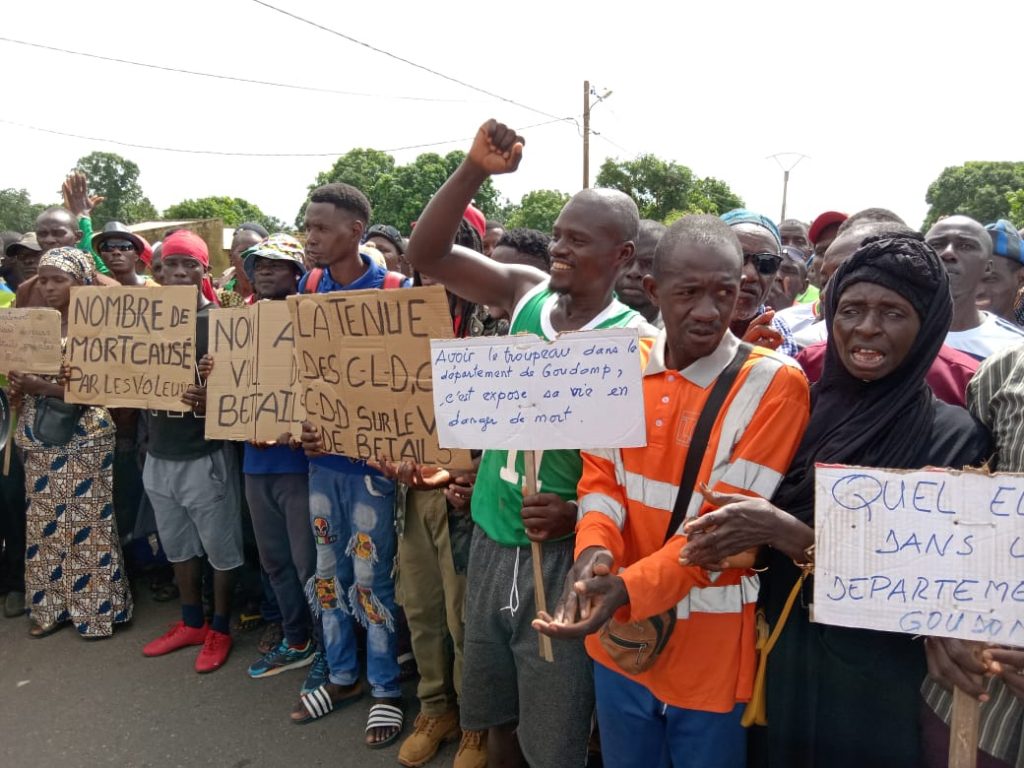 NOMBRE DE
MORT CAUSÉ
PAR LES VOLEURS
BETAIL
LA TENUE
DES C-L-D,C
CDD SUR LE V
DE BETAILS
Avoir le troupeau dans le
département de Goudomp,
c'est expose sa vie en
danger de mort.
QUEL
DANS
DEPARTEME
GOUDOM